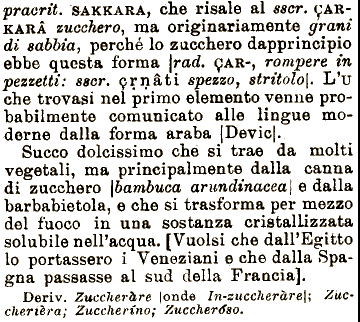 pracrit. SAKKARA, che risale al sscr. ÇAR-
KARÂ zucchero, ma originariamente grani
di sabbia, perché lo zucchero dapprincipio
ebbe questa forma |rad. ÇAR-, rompere in
pezzetti: sscr. çṛnâti spezzo, stritolo|. L'U
che trovasi nel primo elemento venne pro-
babilmente comunicato alle lingue mo-
derne dalla forma araba |Devic|.
Succo dolcissimo che si trae da molti
vegetali, ma principalmente dalla canna
di zucchero |bambuca arundinacea| e dalla
barbabietola, e che si trasforma per mezzo
del fuoco in una sostanza cristallizzata
solubile nell'acqua. [Vuolsi che dall'Egitto
lo portassero i Veneziani e che dalla Spa-
gna passasse al sud della Francia].
Deriv. Zuccheràre |onde In-zuccheràre|; Zuc-
cherièra; Zuccherino; Zuccheróso.